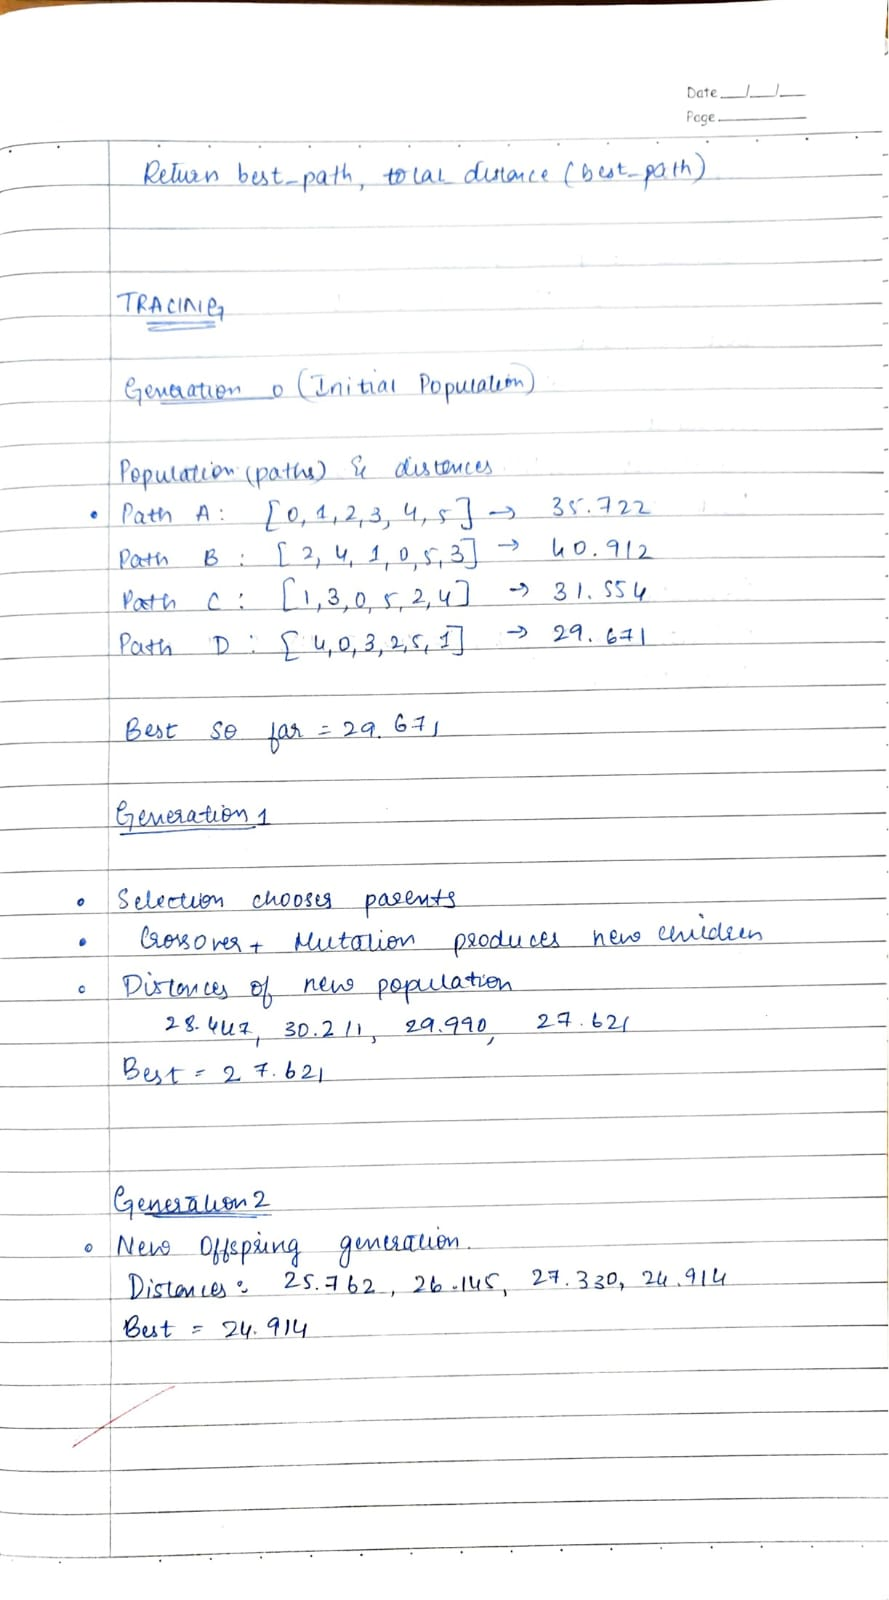 Date__/__/__
Page______
Return best_path, total distance (best_path)
TRACING
Generation 0 (Initial Population)
Population (paths) & distances
• Path A: [0, 1, 2, 3, 4, 5] → 35.722
Path B : [2, 4, 1, 0, 5, 3] → 40.912
Path C : [1, 3, 0, 5, 2, 4] → 31.554
Path D : [4, 0, 3, 2, 5, 1] → 29.671
Best so far = 29.671
Generation 1
• Selection chooses parents
• Crossover + Mutation produces new children
• Distances of new population
28.447, 30.211, 29.990, 27.621
Best = 27.621
Generation 2
• New Offspring generation.
Distances: 25.762, 26.145, 27.330, 24.914
Best = 24.914